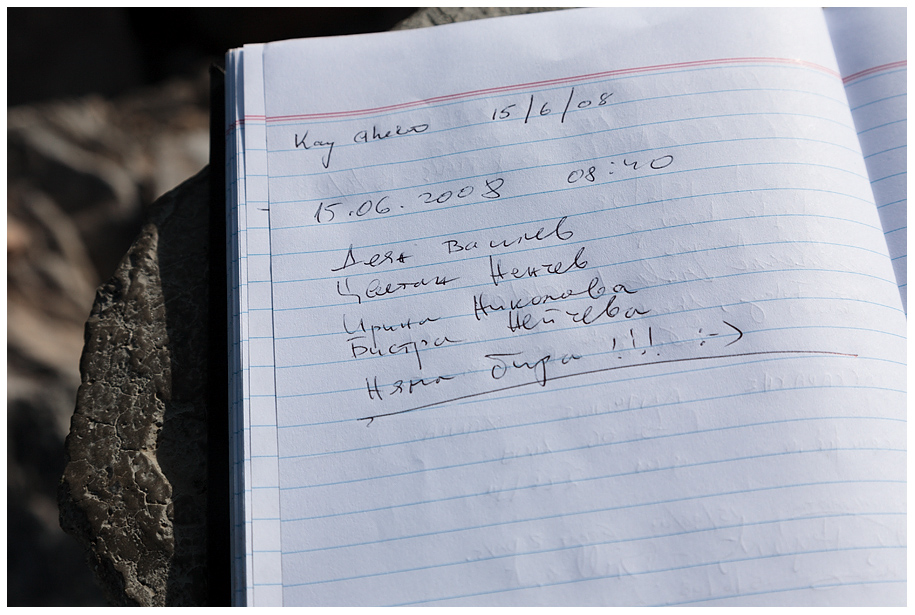 Kay 15/6/08
15.06.2008 08:40
Деян Василев
Цветан Ненчев
Ирина Николова
Бистра Нейчева
Няма бира !!! :-)